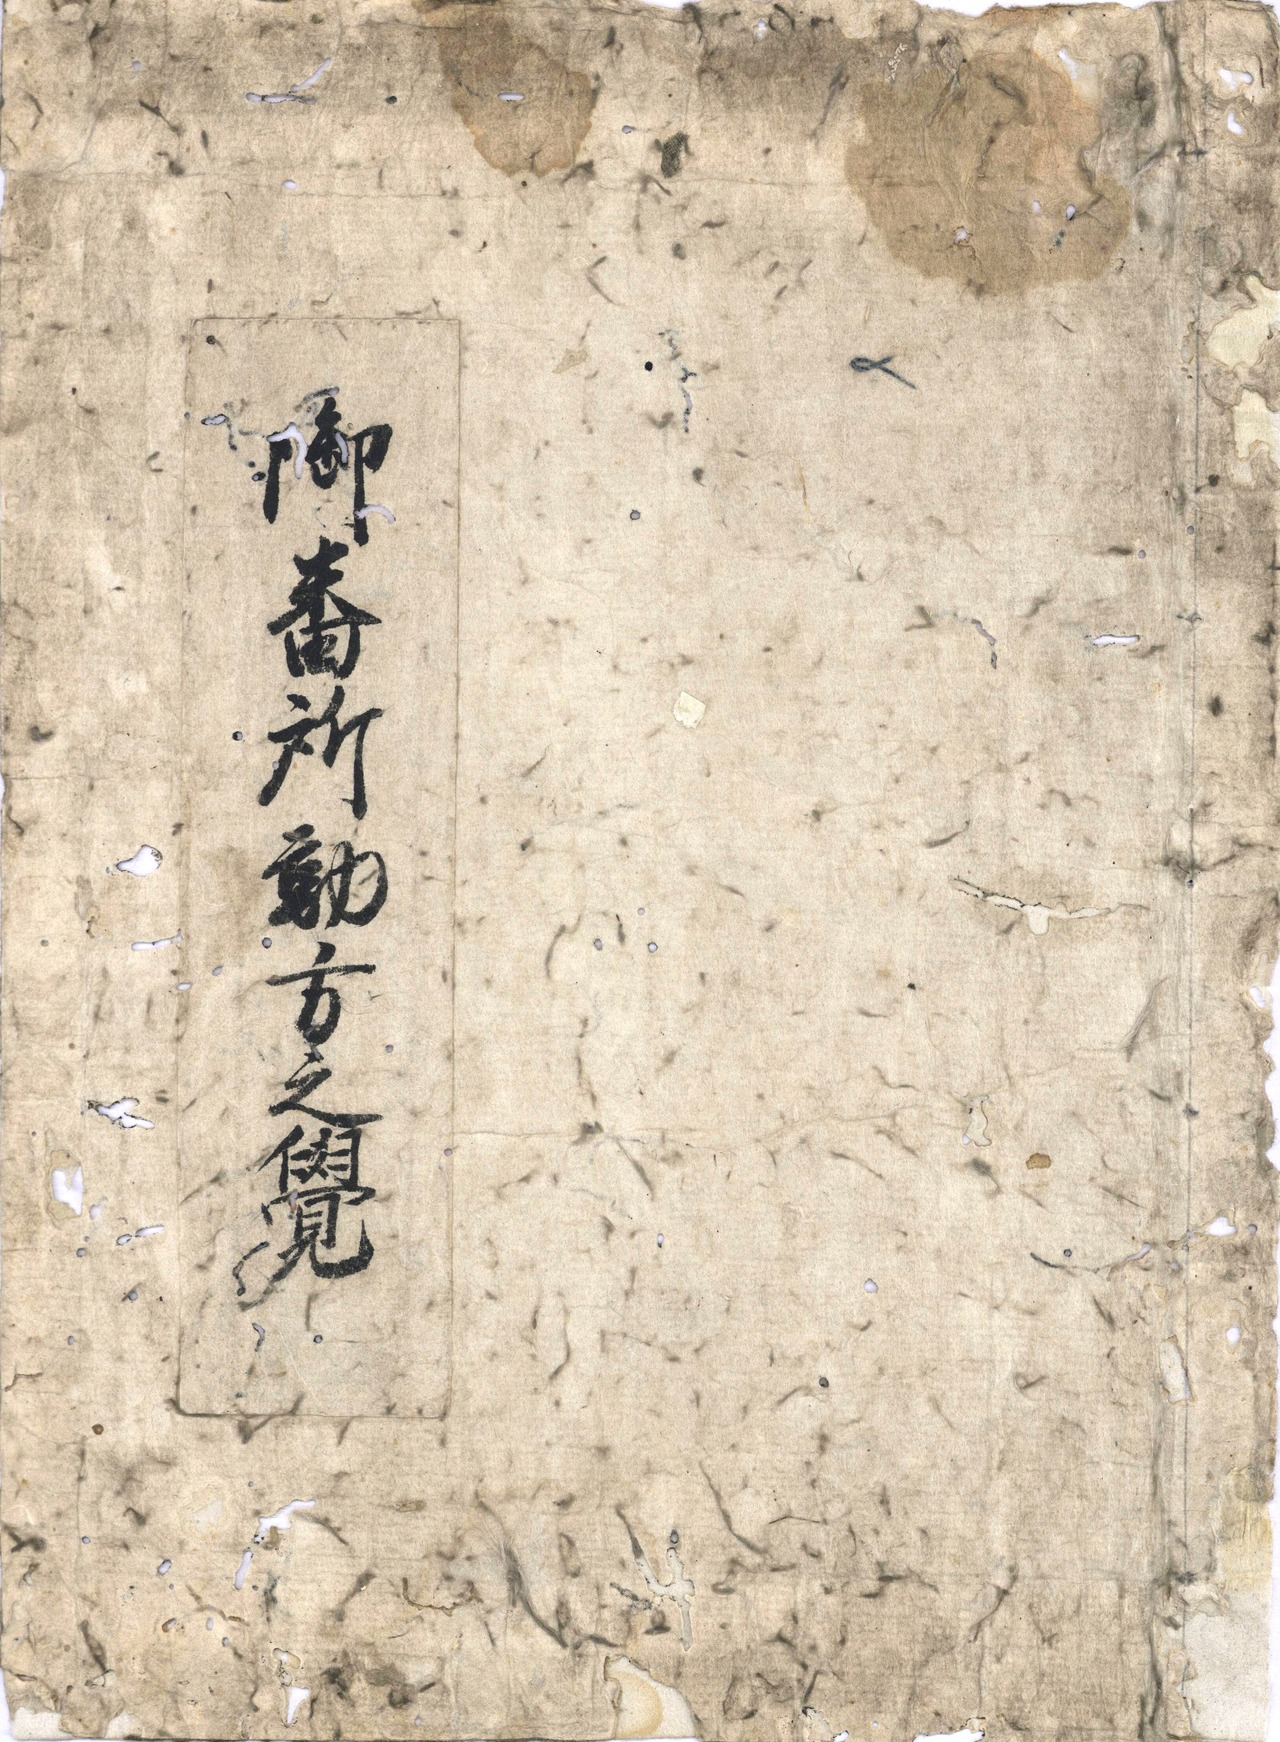 御番所勤方之覺